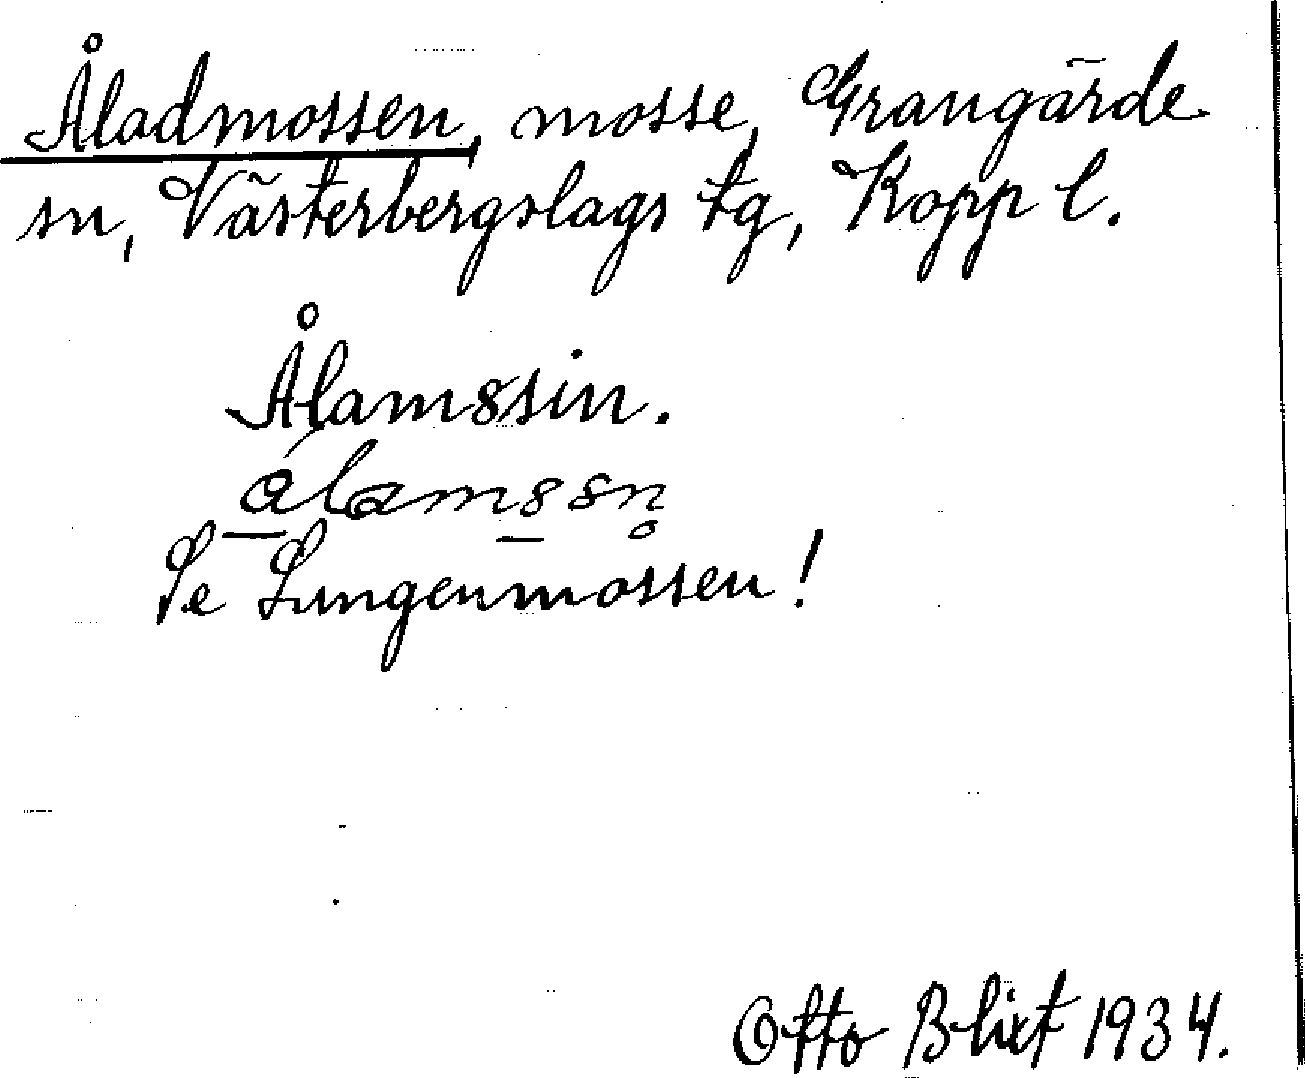 Åladmossen, mosse, Grangärde
sn, Västerbergslags tg, Kopp l.
Ålam8sin.
ålam8sn̥
Se Lungenmossen!
Otto Blixt 1934.